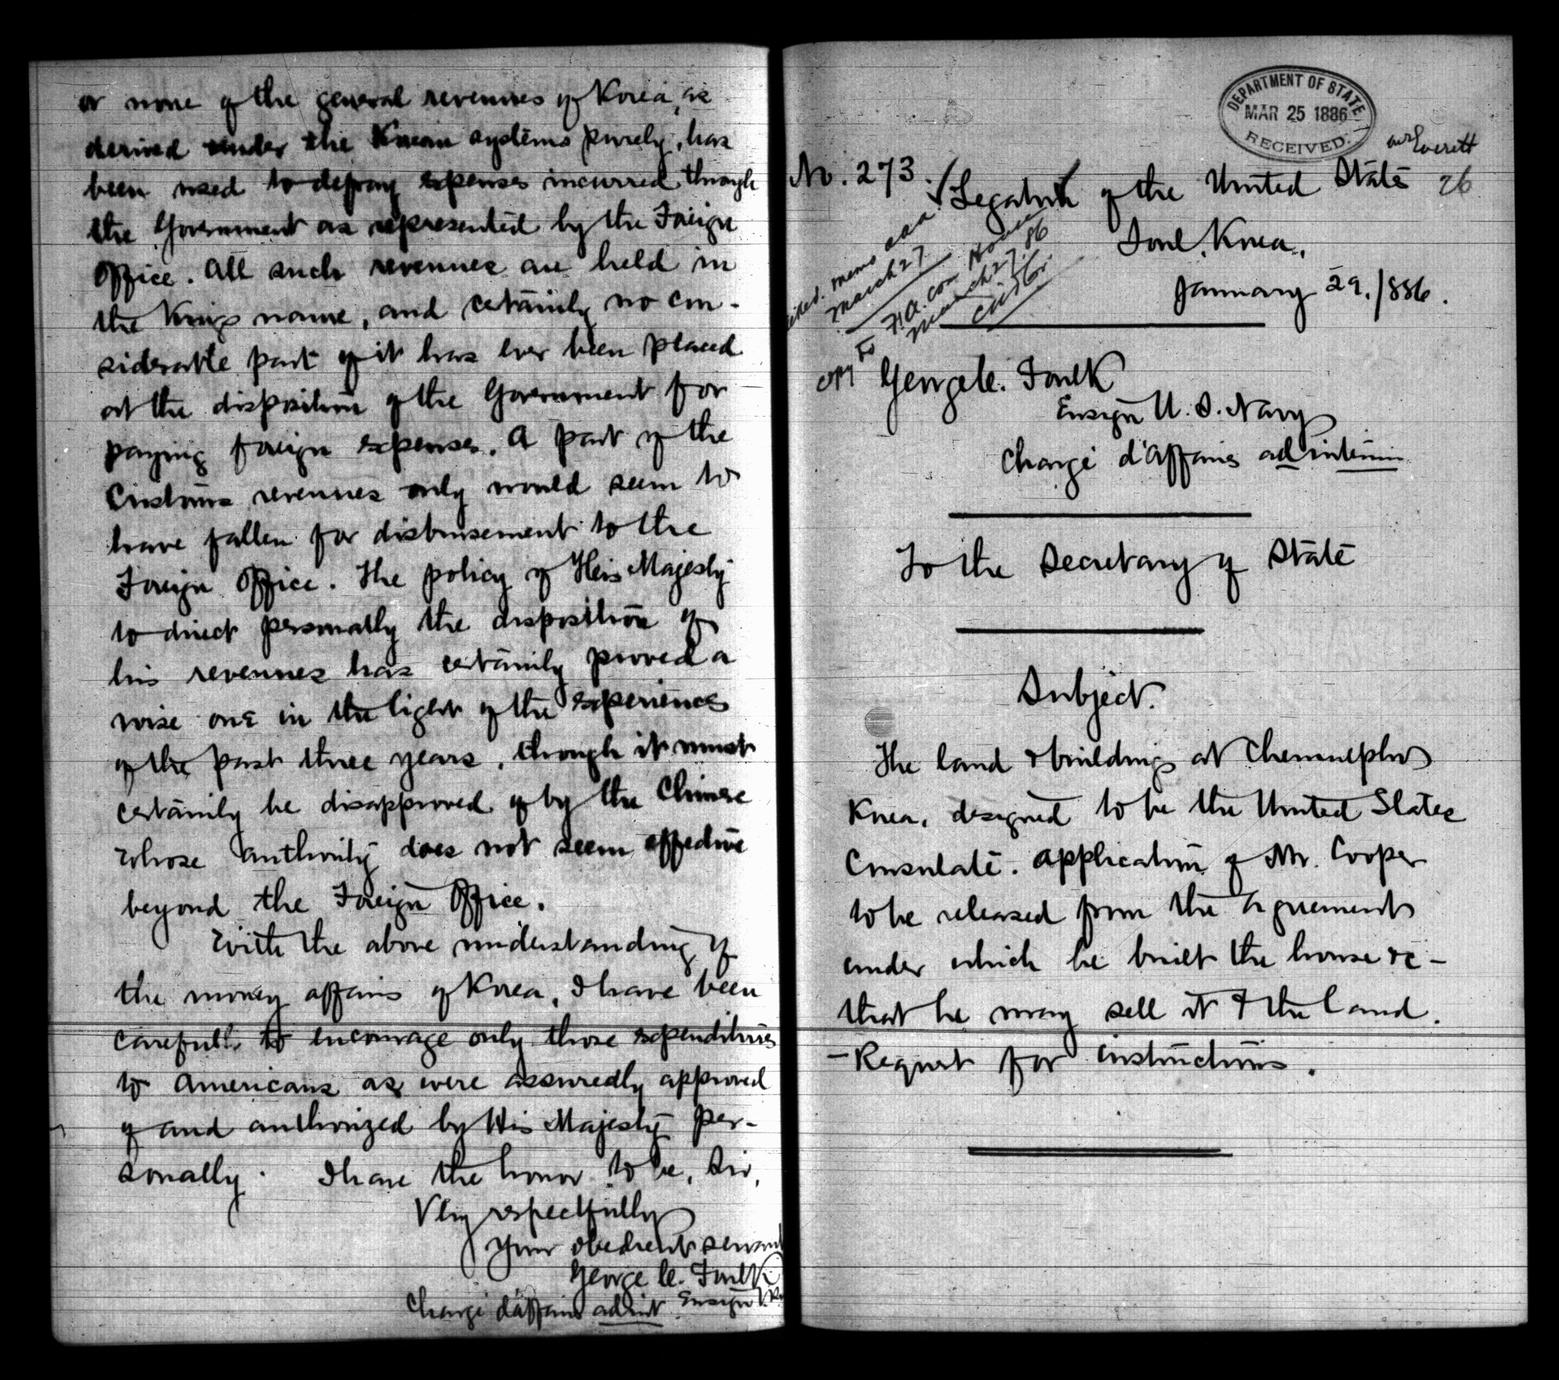 or none of the general revenues of Korea, as
derived under the Korean systems purely, has
been used to defray expenses incurred through
the Government as represented by the Foreign
Office. All such revenues are held in
the King's name, and certainly no con-
siderable part of it has ever been placed
at the disposition of the Government for
paying foreign expenses. A part of the
Customs revenues only would seem to
have fallen for disbursement to the
Foreign Office. The policy of His Majesty
to direct personally the disposition of
his revenues has certainly proved a
wise one in the light of the experience
of the past three years, though it must
certainly be disapproved of by the Chinese
whose authority does not seem effective
beyond the Foreign Office.
With the above understanding of
the money affairs of Korea, I have been
careful to encourage only those expenditures
to Americans as were assuredly approved
of and authorized by His Majesty per-
sonally. I have the honor to be, Sir,
Very respectfully
Your obedient servant
George C. Foulk
Ensign U.S.
Chargé d'affaires ad int
DEPARTMENT OF STATE
MAR 25 1886
RECEIVED.
Everett
No. 273.
Legation of the United States 26
Soul, Korea,
January 29, 1886.
memo
March 27
Copy to H.A. Com House
March 27, 86
George C. Foulk
Ensign U.S. Navy
Chargé d'affaires ad interim
To the Secretary of State
Subject.
The land & buildings at Chemulpho
Korea, designed to be the United States
Consulate. application of Mr. Cooper
to be released from the agreements
under which he built the house &c -
that he may sell it & the land.
- Request for instructions.